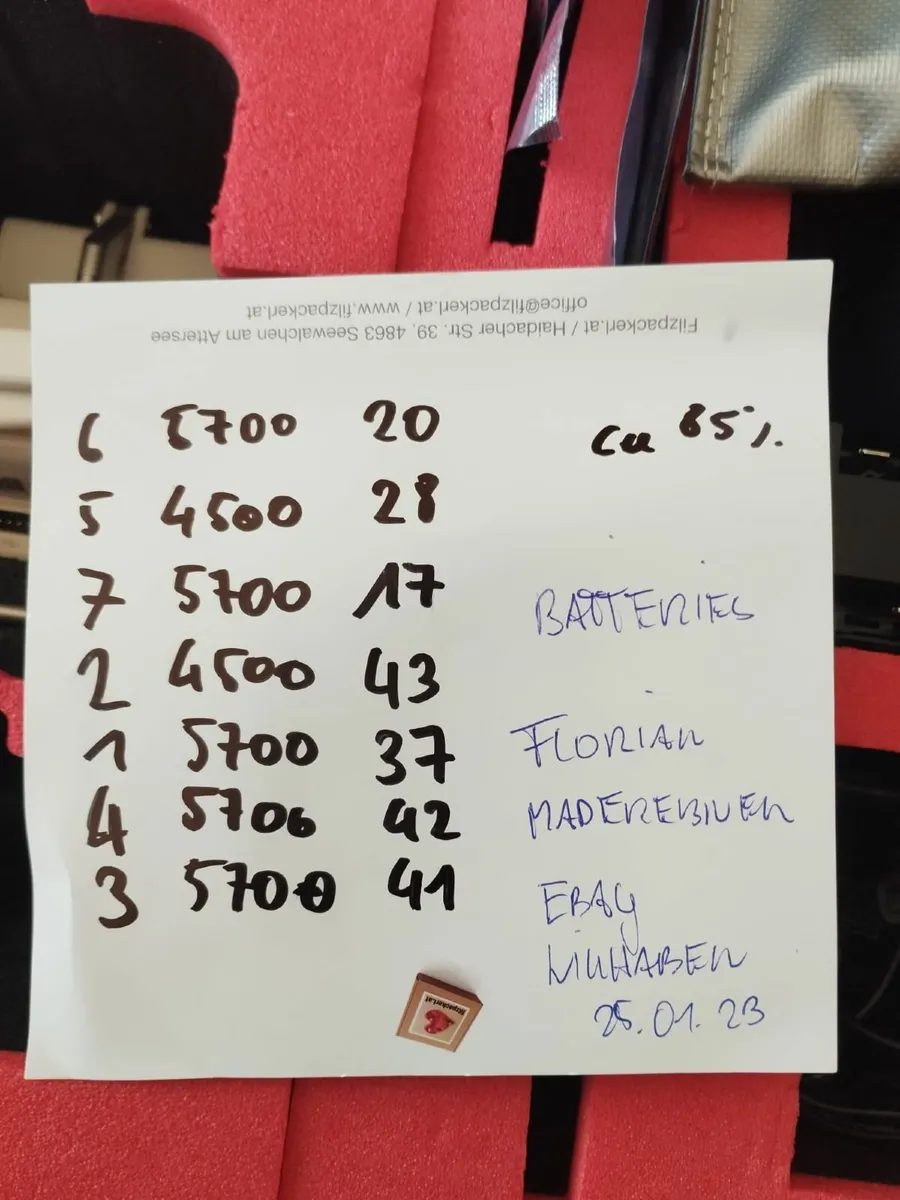 office@filzpackerl.at / www.filzpackerl.at
Filzpackerl.at / Haidacher Str. 39, 4863 Seewalchen am Attersee
6 5700 20
ca 85%
5 4500 28
7 5700 17
BATTERIES
2 4500 43
1 5700 37
FLORIAN
4 5700 42
3 5700 41
EBAY
WILLHABEN
25.01.23
filzpackerl.at